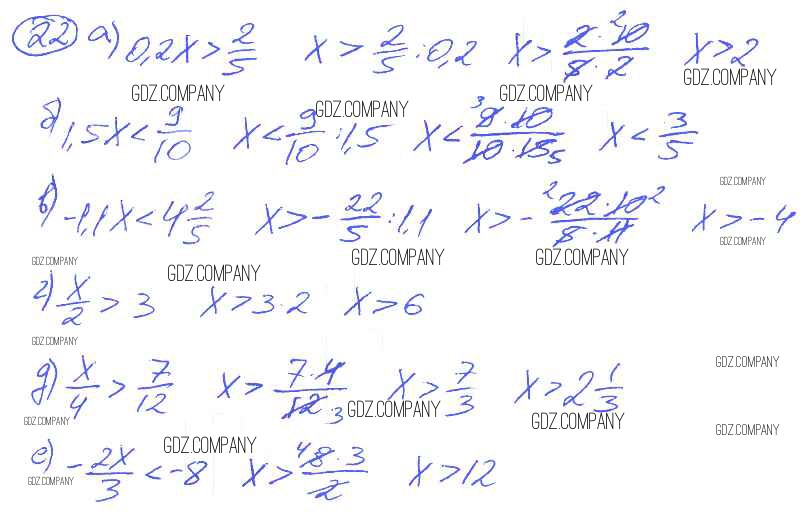 22 а) 0,2x > 2/5 x > 2/5 : 0,2 x > 2·10 2/5·2 x > 2
GDZ.COMPANY GDZ.COMPANY GDZ.COMPANY GDZ.COMPANY
б) 1,5x < 9/10 x < 9/10 : 1,5 x < 3 9·10/10·15 5 x < 3/5
GDZ.COMPANY
в) -1,1x < 4 2/5 x > - 22/5 : 1,1 x > - 2 22·10 2/5·11 x > -4
GDZ.COMPANY GDZ.COMPANY GDZ.COMPANY GDZ.COMPANY GDZ.COMPANY
г) x/2 > 3 x > 3·2 x > 6
GDZ.COMPANY
д) x/4 > 7/12 x > 7·4/12 3 x > 7/3 x > 2 1/3
GDZ.COMPANY GDZ.COMPANY GDZ.COMPANY GDZ.COMPANY
е) - 2x/3 < -8 x > 4 8·3/2 x > 12
GDZ.COMPANY GDZ.COMPANY GDZ.COMPANY